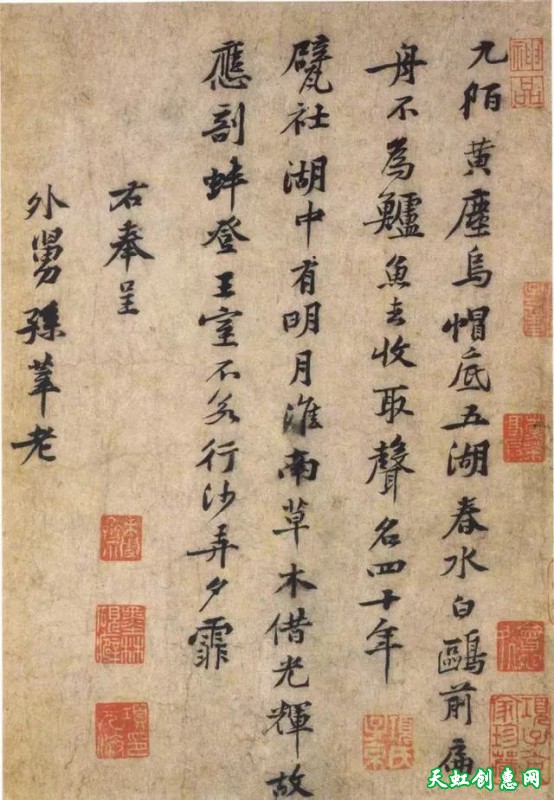 九陌黄塵烏帽底五湖春水白鷗前扁
舟不為鱸魚去收取聲名四十年
甓社湖中有明月淮南草木借光輝故
應剖蚌登王室不若行沙弄夕霏
右奉呈
外舅孫莘老
神品
項子京家珍藏
天虹创惠网